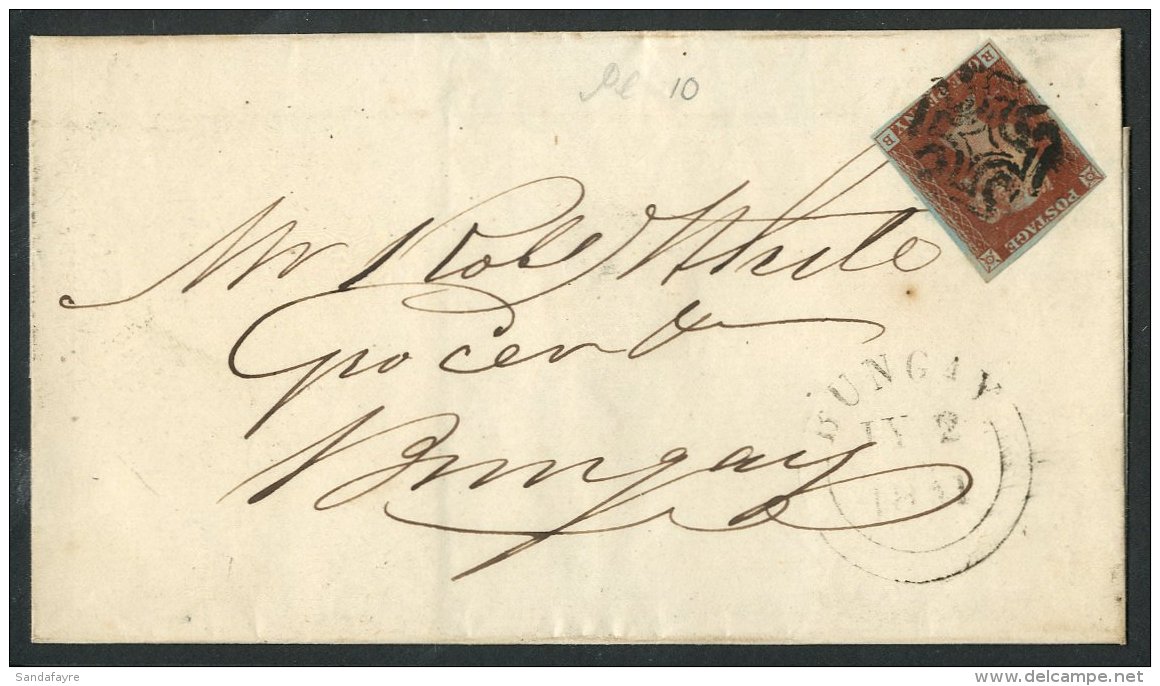 Pl 10
POSTAGE
R ONE PENNY B
Mr Robt White
Grocer &
Bungay
BUNGAY
JY 2
1841
Sandafayre
delcampe.net